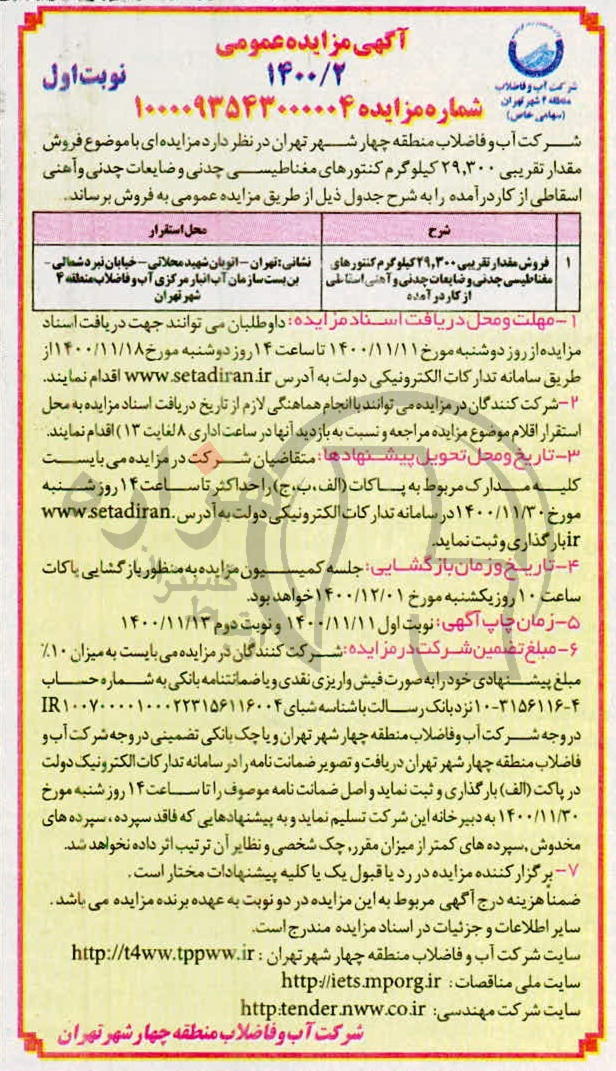 آگهی مزایده عمومی
۱۴۰۰/۲
نوبت اول
شماره مزایده ۱۰۰۰۰۹۳۵۴۳۰۰۰۰۰۴
شرکت آب و فاضلاب
منطقه ۴ شهر تهران
(سهامی خاص)
شرکت آب و فاضلاب منطقه چهار شهر تهران در نظر دارد مزایده ای با موضوع فروش
مقدار تقریبی ۲۹,۳۰۰ کیلوگرم کنتورهای مغناطیسی چدنی و ضایعات چدنی و آهنی
اسقاطی از کار درآمده را به شرح جدول ذیل از طریق مزایده عمومی به فروش برساند.
شرح
محل استقرار
۱
فروش مقدار تقریبی ۲۹,۳۰۰ کیلوگرم کنتورهای
مغناطیسی چدنی و ضایعات چدنی و آهنی اسقاطی
از کار درآمده
نشانی: تهران - اتوبان شهید محلاتی - خیابان نبرد شمالی -
بن بست سازمان آب انبار مرکزی آب و فاضلاب منطقه ۴
شهر تهران
۱- مهلت و محل دریافت اسناد مزایده: داوطلبان می توانند جهت دریافت اسناد
مزایده از روز دوشنبه مورخ ۱۴۰۰/۱۱/۱۱ تا ساعت ۱۴ روز دوشنبه مورخ ۱۴۰۰/۱۱/۱۸ از
طریق سامانه تدارکات الکترونیکی دولت به آدرس www.setadiran.ir اقدام نمایند.
۲- شرکت کنندگان در مزایده می توانند با انجام هماهنگی لازم از تاریخ دریافت اسناد مزایده به محل
استقرار اقلام موضوع مزایده مراجعه و نسبت به بازدید آنها در ساعت اداری ۸ لغایت ۱۳) اقدام نمایند.
۳- تاریخ و محل تحویل پیشنهادها: متقاضیان شرکت در مزایده می بایست
کلیه مدارک مربوط به پاکات (الف، ب، ج) را حداکثر تا ساعت ۱۴ روز شنبه
مورخ ۱۴۰۰/۱۱/۳۰ در سامانه تدارکات الکترونیکی دولت به آدرس www.setadiran.
ir بارگذاری و ثبت نماید.
۴- تاریخ و زمان بازگشایی: جلسه کمیسیون مزایده به منظور بازگشایی پاکات
ساعت ۱۰ روز یکشنبه مورخ ۱۴۰۰/۱۲/۰۱ خواهد بود.
۵- زمان چاپ آگهی: نوبت اول ۱۴۰۰/۱۱/۱۱ و نوبت دوم ۱۴۰۰/۱۱/۱۳
۶- مبلغ تضمین شرکت در مزایده: شرکت کنندگان در مزایده می بایست به میزان ۱۰٪
مبلغ پیشنهادی خود را به صورت فیش واریزی نقدی و یا ضمانتنامه بانکی به شماره حساب
۱۰-۳۱۵۶۱۱۶-۴ نزد بانک رسالت با شناسه شبای IR۱۰۰۷۰۰۰۰۱۰۰۰۲۲۳۱۵۶۱۱۶۰۰۴
در وجه شرکت آب و فاضلاب منطقه چهار شهر تهران و یا چک بانکی تضمینی در وجه شرکت آب و
فاضلاب منطقه چهار شهر تهران دریافت و تصویر ضمانت نامه را در سامانه تدارکات الکترونیک دولت
در پاکت (الف) بارگذاری و ثبت نماید و اصل ضمانت نامه موصوف را تا ساعت ۱۴ روز شنبه مورخ
۱۴۰۰/۱۱/۳۰ به دبیرخانه این شرکت تسلیم نماید و به پیشنهادهایی که فاقد سپرده، سپرده های
مخدوش ,سپرده های کمتر از میزان مقرر, چک شخصی و نظایر آن ترتیب اثر داده نخواهد شد.
۷- برگزار کننده مزایده در رد یا قبول یک یا کلیه پیشنهادات مختار است.
ضمناً هزینه درج آگهی مربوط به این مزایده در دو نوبت به عهده برنده مزایده می باشد.
سایر اطلاعات و جزئیات در اسناد مزایده مندرج است.
سایت شرکت آب و فاضلاب منطقه چهار شهر تهران : http://t4ww.tppww.ir
سایت ملی مناقصات: http://iets.mporg.ir
سایت شرکت مهندسی: http:tender.nww.co.ir
شرکت آب و فاضلاب منطقه چهار شهر تهران